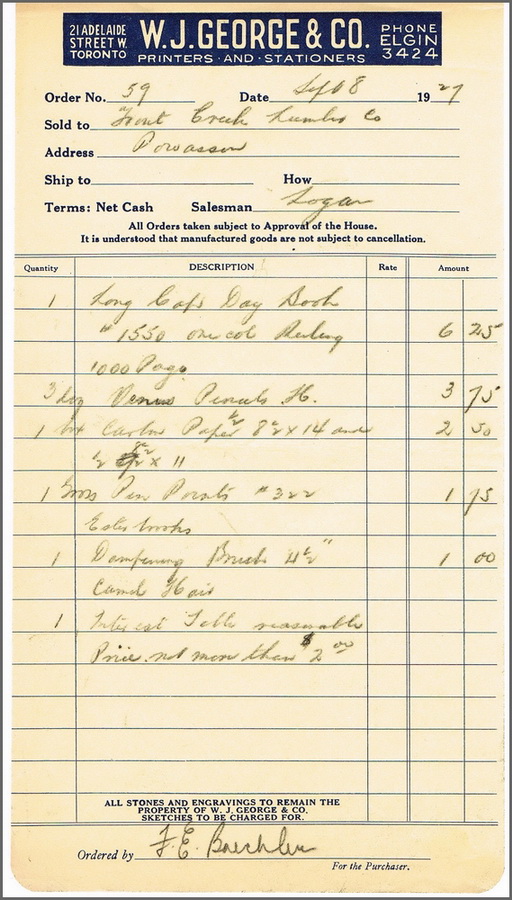 21 ADELAIDE STREET W. TORONTO
W. J. GEORGE & CO.
PRINTERS · AND · STATIONERS
PHONE ELGIN 3424
Order No. 59 Date Sept 8 1927
Sold to Trout Creek Lumber Co
Address Powassan
Ship to How
Terms: Net Cash Salesman Logan
All Orders taken subject to Approval of the House.
It is understood that manufactured goods are not subject to cancellation.
Quantity DESCRIPTION Rate Amount
1 Long Caps Day Book
" 1550 one col Ruling 6 25
1000 Page
3 doz Venus Pencils H. 3 75
1 box Carbon Paper ½ 8½ x 14 and 2 50
½ 8½ x 11
1 Gross Pen Points # 322 1 75
Esterbrooks
1 Dampening Brush 4½" 1 00
Camel Hair
1 Interest Table reasonable
Price. not more than $2.00
ALL STONES AND ENGRAVINGS TO REMAIN THE
PROPERTY OF W. J. GEORGE & CO.
SKETCHES TO BE CHARGED FOR.
Ordered by F. E. Baechler
For the Purchaser.